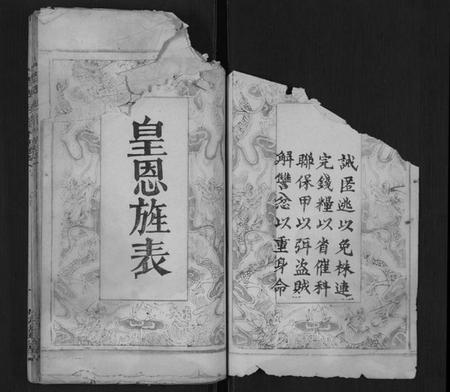 誡匿逃以免株連
完錢糧以省催科
聯保甲以弭盜賊
解讐忿以重身命
皇恩旌表